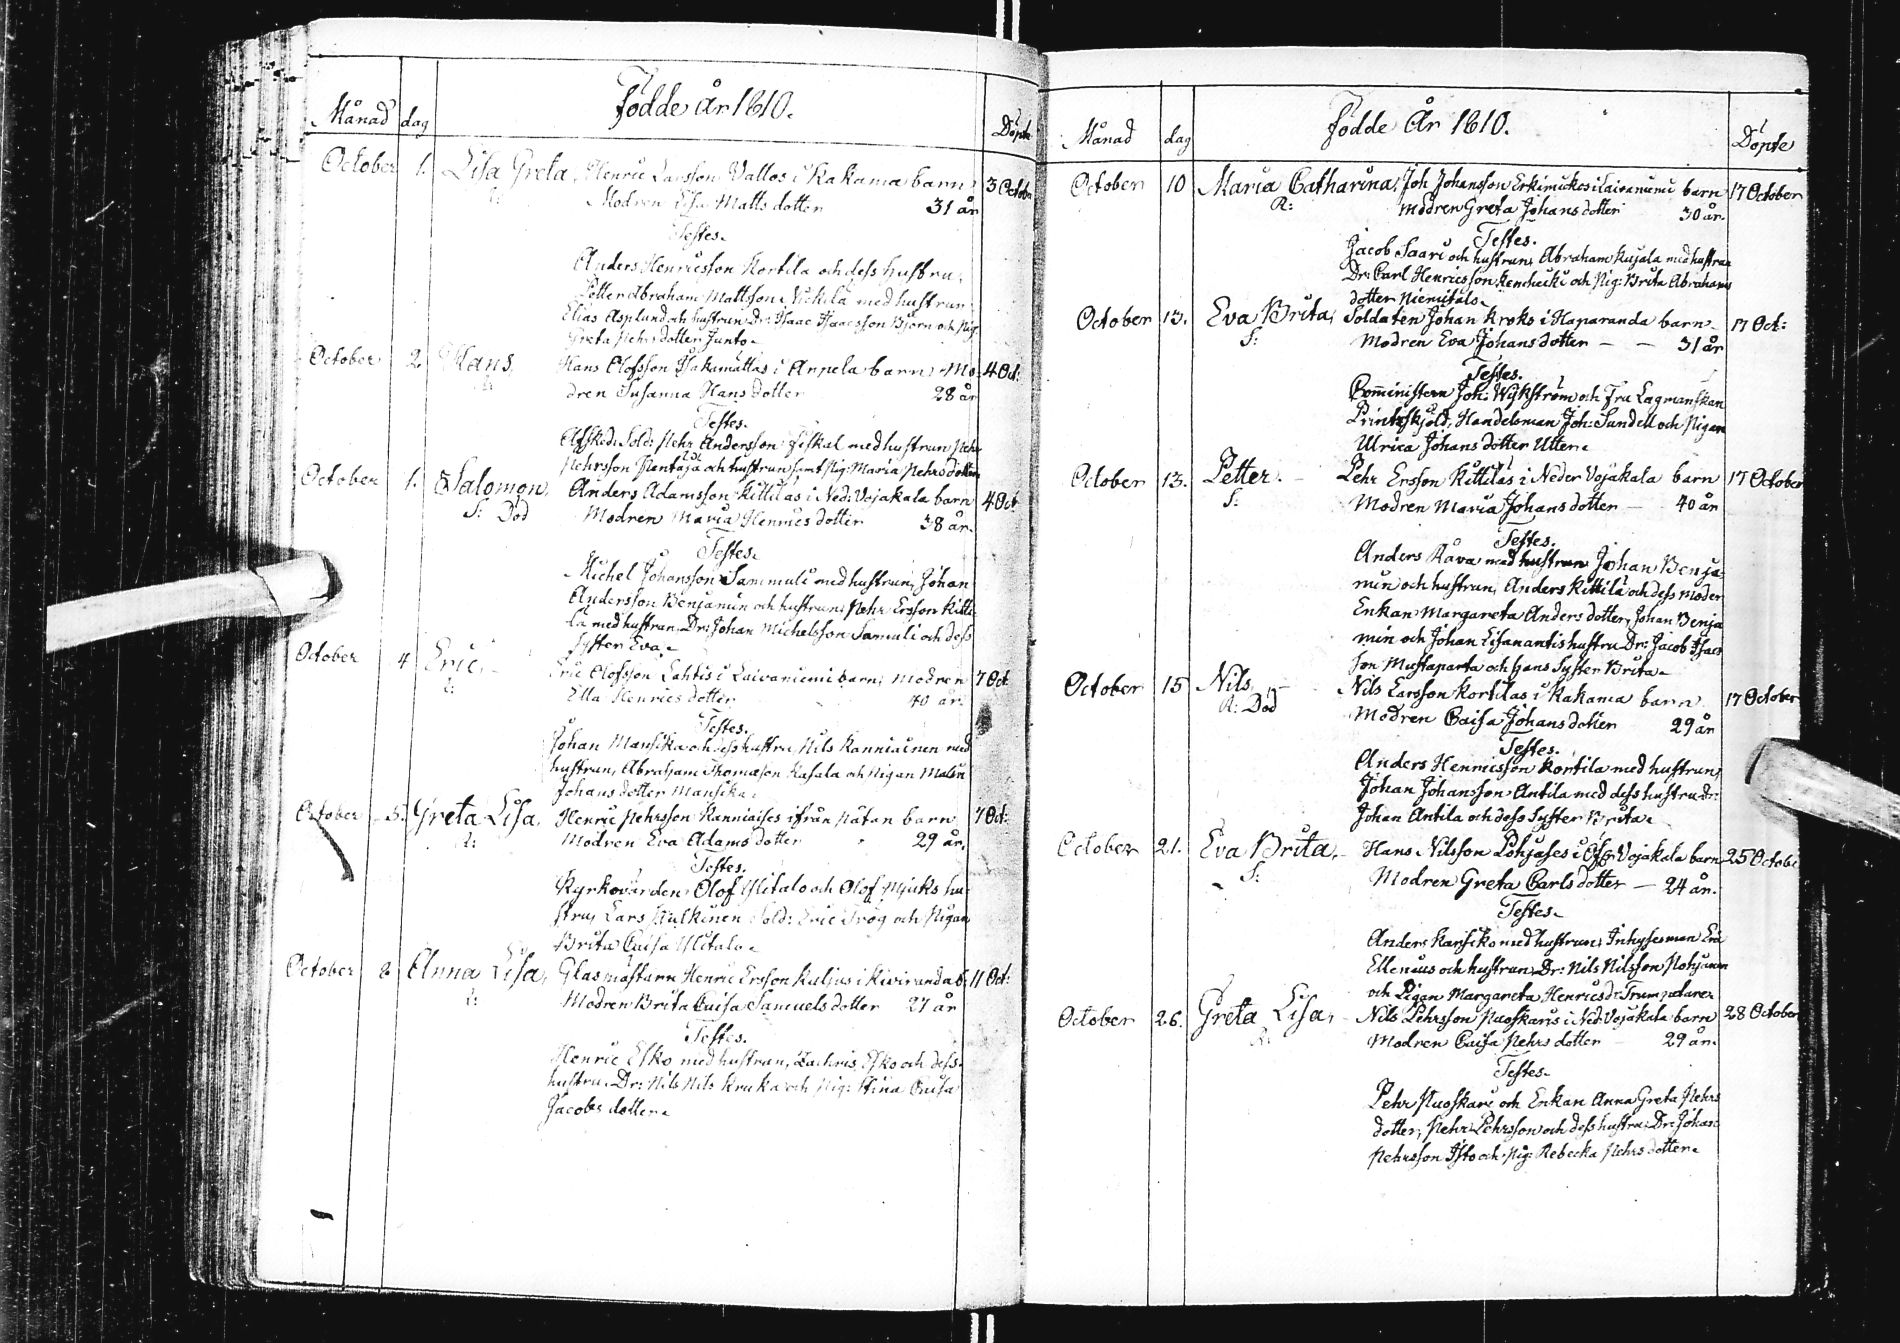 Födde År 1810.
Månad dag Döpte
October 1. Lisa Greta, Henric Larsson Vallos i Kakama barn 3 Octobr
Modren Lisa Matts dotter 31 år
Testes.
Anders Henricsson Kortila och dess hustru,
Petter Abraham Mattsson Nickila med hustrun
Elias Asplund och hustrun, Dr: Isaac Isaacsson Björn och Pig:
Greta Pehrs dotter Junto.
October 2. Hans, Hans Olofsson Hakamattas i Arpela barn, Mo- 4 Oct:
dren Susanna Hans dotter 28 år
Testes.
Afsked: Sold: Pehr Andersson Fiskal med hustrun, Pehr
Pehrsson och hustrun samt Pig: Maria Pehrs dotter
October 1. Salomon, Anders Adamsson Kittilas i Ned: Vojakala barn 4 Oct
S: Död Modren Maria Henrics dotter 38 år.
Testes.
Michel Johansson Sammuli med hustrun, Johan
Andersson Benjamin och hustrun, Pehr Ersson Kitti-
la med hustrun, Dr: Johan Michelsson Samuli och dess
syster Eva.
October 4 Eric, Eric Olofsson Lahtis i Laivaniemi barn, Modren 7 Oct
Ella Henrics dotter 40 år.
Testes.
Johan Mansika och dess hustru, Nils Kanniainen med
hustrun, Abraham Thomasson Kasala och Pigan Malin
Johans dotter Mansika.
October 5. Greta Lisa, Henric Pehrsson Kanniaises ifrån Pätan barn 7 Oct:
Modren Eva Adams dotter 29 år.
Testes.
Kyrkovärden Olof Ylitalo och Olof Mjuks hu-
stru, Lars Hulkinen Sold: Eric Trög och Pigan
Brita Caisa Ylitalo.
October 8 Anna Lisa, Glasmästarn Henric Ersson Kuljus i Kiviranda b: 11 Oct:
Modren Brita Caisa Samuels dotter 27 år
Testes.
Henric Esko med hustrun, Zachris Esko och dess
hustru. Dr: Nils Nils Kruka och Pig: Stina Caisa
Jacobs dotter.
Födde År 1810.
Månad dag Döpte
October 10 Maria Catharina, Joh Johansson Erkimickos i Laivaniemi barn 17 October
R: Modren Greta Johans dotter 30 år.
Testes.
Jacob Saari och hustrun, Abraham Kujala med hustrun
Dr: Carl Henricsson och Pig: Brita Abrahams
dotter Niemitalo.
October 13. Eva Brita, Soldaten Johan Kroks i Haparanda barn 17 Oct:
S: Modren Eva Johans dotter – – 31 år
Testes.
Com̄inistern Joh: Wikström och Fru Lagmanskan
Printzskjold, Handelsman Joh: Sundell och Pigan
Ulrica Johans dotter Utter.
October 13. Petter. Pehr Ersson Kittilas i Neder Vojakala barn 17 October
S: Modren Maria Johans dotter – 40 år
Testes.
Anders Rava med hustrun Johan Benja-
min och hustrun, Anders Kittila och dess Moder
Enkan Margareta Anders dotter, Johan Benja
min och Johan Lisanantis hustru Dr: Jacob Isacs
son Mustaparta och hans Syster Brita.
October 15 Nils, Nils Larsson Kortilas i Kakama barn 17 October
R: Död Modren Caisa Johans dotter 29 år
Testes.
Anders Henricsson Kortila med hustrun,
Johan Johansson Antila med dess hustru Dr:
Johan Antila och dess Syster Brita.
October 21. Eva Brita, Hans Nilsson Pohjases i Öfr Vojakala barn 25 Octobr
S: Modren Greta Carls dotter – 24 år.
Testes.
Anders Karsiko med hustrun, Inhysesman Eric
Ellenius och hustrun, Dr: Nils Nilsson Pohjanen
och Pigan Margareta Henrics dr Trumpetare
October 26. Greta Lisa, Nils Pehrsson Ruoskaris i Ned Vojakala barn 28 October
R: Modren Caisa Pehrs dotter 29 år.
Testes.
Pehr Ruoskari och Enkan Anna Greta Pehrs
dotter, Pehr Pehrsson och dess hustru, Dr: Johan
Pehrsson Isto och Pig: Rebecka Pehrs dotter.